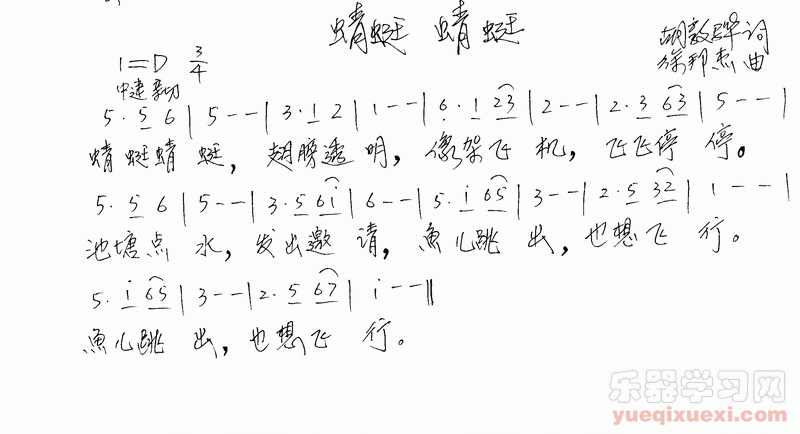 蜻蜓 蜻蜓
1=D 3/4
胡敦骅词
中速 亲切
徐邦杰曲
5. 5 6 | 5 - - | 3. 1 2 | 1 - - | 6. 1 23 | 2 - - | 2. 3 63 | 5 - - |
蜻蜓蜻 蜓，翅膀透 明，像架飞 机，飞飞停 停。
5. 5 6 | 5 - - | 3. 5 6i | 6 - - | 5. i 65 | 3 - - | 2. 5 32 | 1 - - |
池塘点 水，发出邀 请，魚儿跳 出，也想飞 行。
5. i 65 | 3 - - | 2. 5 67 | i - - ‖
魚儿跳 出，也想飞 行。
乐器学习网
yueqixuexi.com